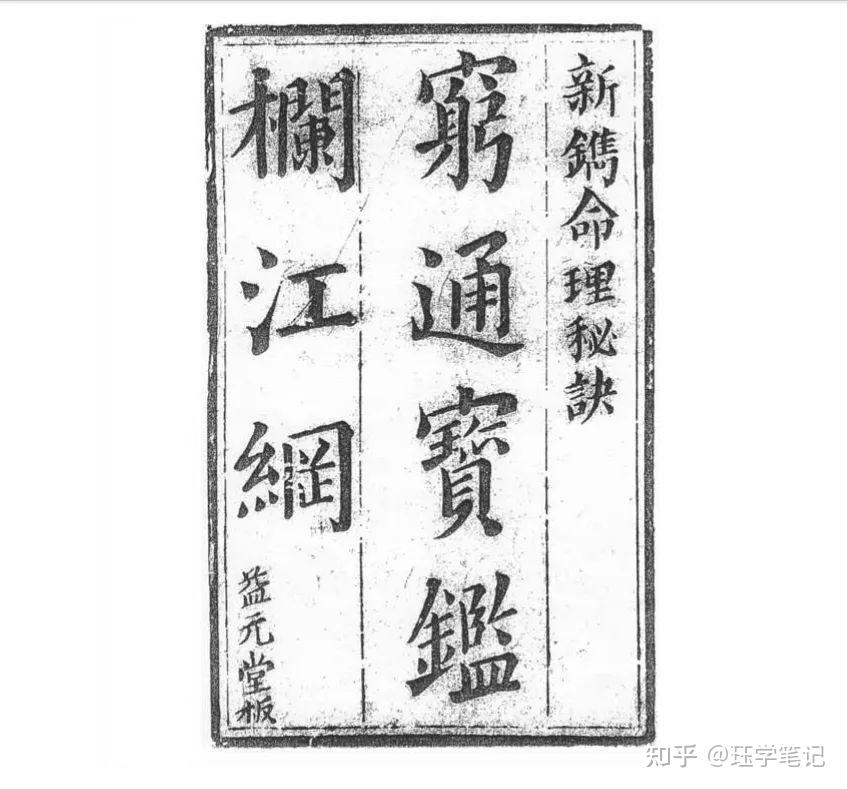 新鐫命理秘訣
窮通寶鑑
欄江網
益元堂板
知乎 @珏学笔记